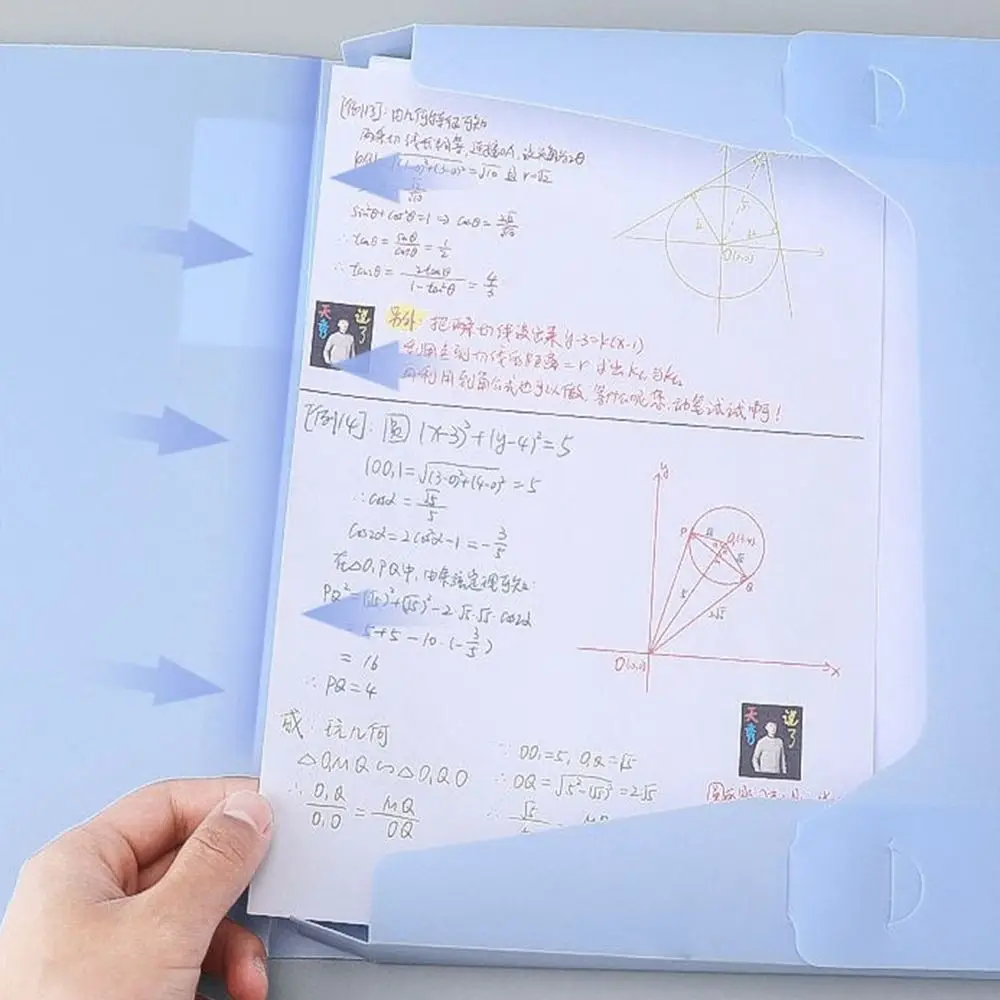 [例13]: 由几何特征可知
两条切线长相等, 连接OA, 设夹角为2θ
= √10 且 r=√2
sin²θ+cos²θ=1 ⇒ cosθ = 2√2/√10
∴ tanθ = sinθ/cosθ = 1/2
∴ tan2θ = 2tanθ/1-tan²θ = 4/3
O(0,0)
天秀 逗了
另外: 把两条切线设出来 y-3=k(x-1)
利用点到切线的距离=r 求出 k₁ 与 k₂
再利用到角公式也可以做, 等什么呢您, 动笔试试啊!
[例14]: 圆 (x-3)²+(y-4)²=5
|OO₁|=√(3-0)²+(4-0)² = 5
∴ cosα = √5/5
cos2α = 2cos²α-1 = -3/5
在△O₁PQ中, 由余弦定理可知:
PQ² = (√5)²+(√5)²-2·√5·√5·cos2α
= 5+5-10·(-3/5)
= 16
∴ PQ=4
y
P
√5
O₁(3,4)
√5
Q
5
2√5
O(0,0)
x
或: 玩几何
△O₁MQ ∽ △O₁QO
∴ O₁Q/O₁O = MQ/OQ
∵ OO₁=5, O₁Q=√5
∴ OQ = √5²-(√5)² = 2√5
∴ √5
天秀 逗了